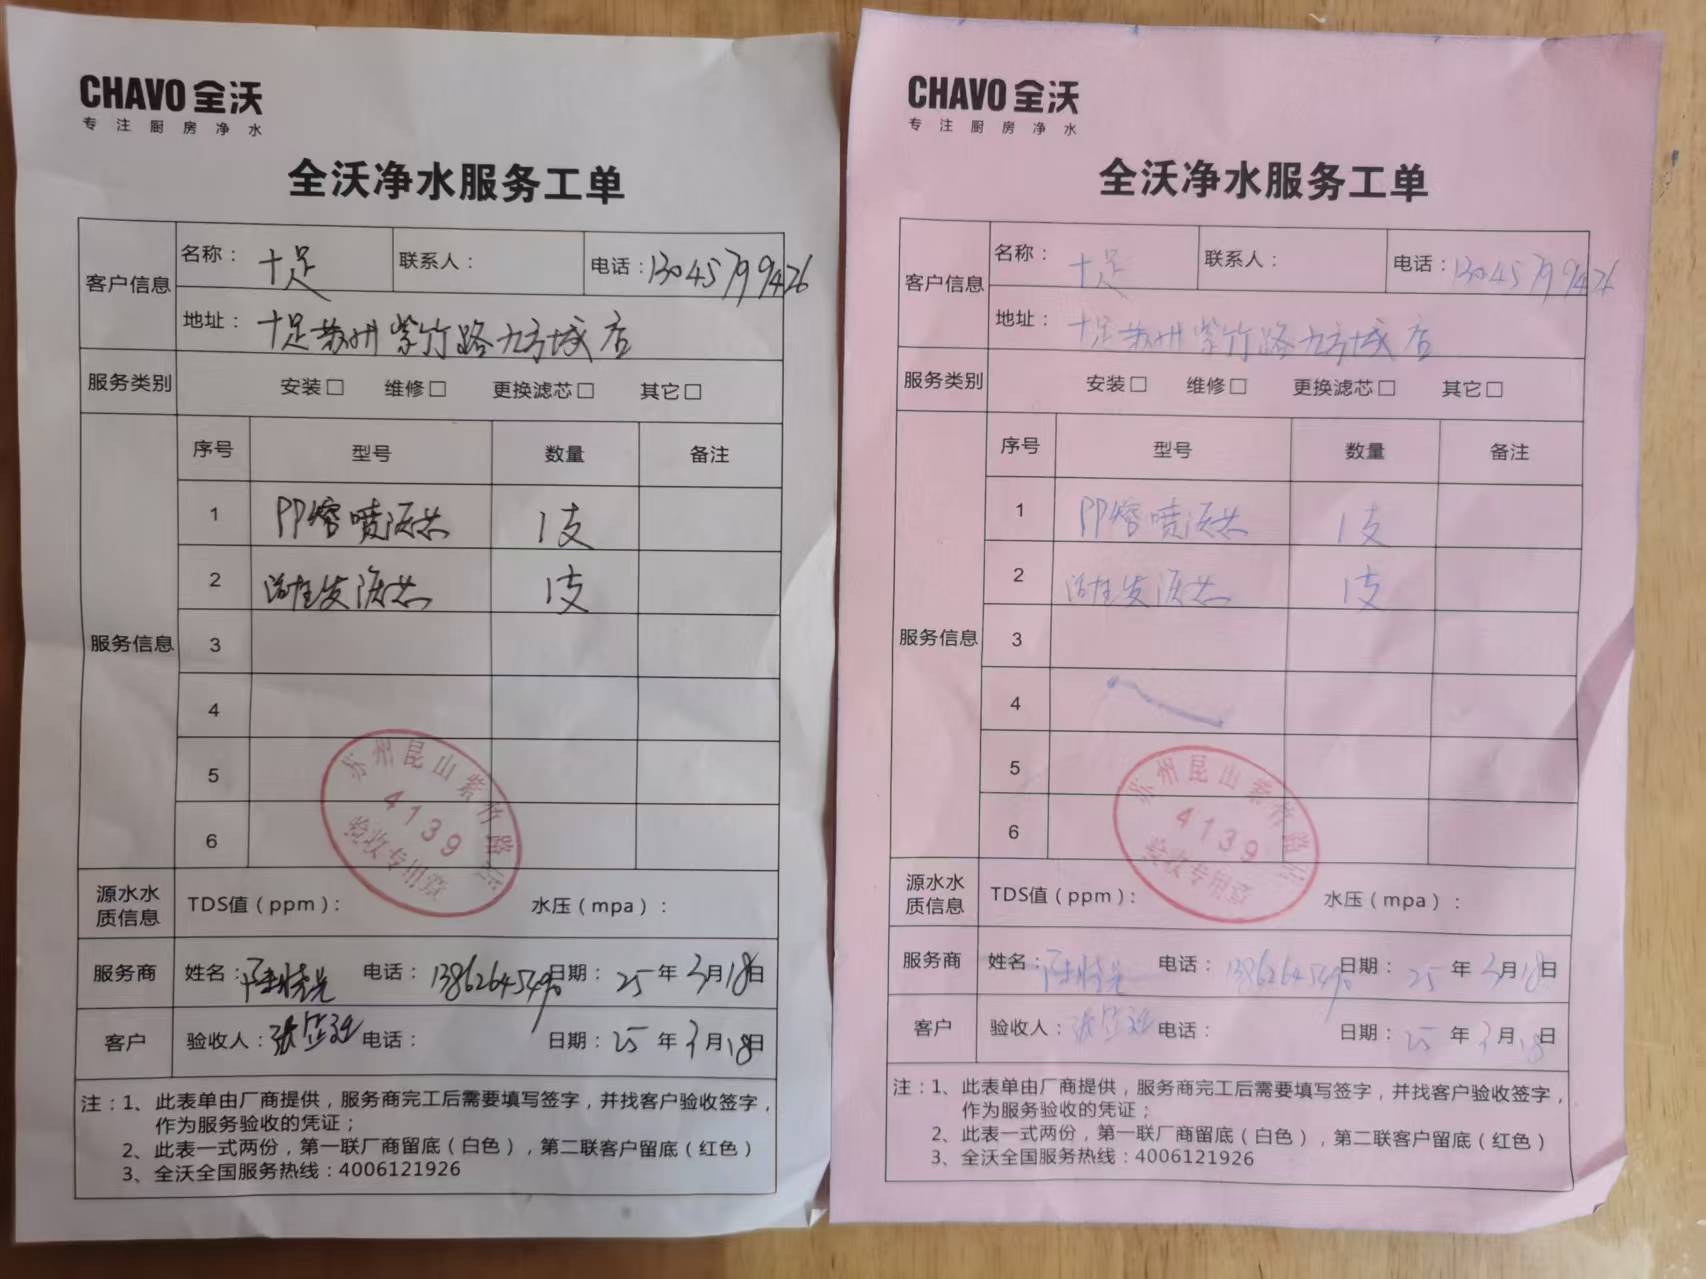 CHAVO 全沃
专注厨房净水
全沃净水服务工单
客户信息 名称：十足 联系人： 电话：13045799426
地址：十足苏州紫竹路九方城店
服务类别 安装□ 维修□ 更换滤芯□ 其它□
服务信息 序号 型号 数量 备注
1 PP熔喷滤芯 1支
2 滤芯 1支
3
4
5
6
苏州昆山紫竹路店
4139
验收专用章
源水水质信息 TDS值（ppm）： 水压（mpa）：
服务商 姓名： 电话：13862645490 日期：25年3月18日
客户 验收人：张 电话： 日期：25年3月18日
注：1、此表单由厂商提供，服务商完工后需要填写签字，并找客户验收签字，
作为服务验收的凭证；
2、此表一式两份，第一联厂商留底（白色），第二联客户留底（红色）
3、全沃全国服务热线：4006121926
CHAVO 全沃
专注厨房净水
全沃净水服务工单
客户信息 名称：十足 联系人： 电话：13045799426
地址：十足苏州紫竹路九方城店
服务类别 安装□ 维修□ 更换滤芯□ 其它□
服务信息 序号 型号 数量 备注
1 PP熔喷滤芯 1支
2 滤芯 1支
3
4
5
6
苏州昆山紫竹路店
4139
验收专用章
源水水质信息 TDS值（ppm）： 水压（mpa）：
服务商 姓名： 电话：13862645490 日期：25年3月18日
客户 验收人：张 电话： 日期：25年3月18日
注：1、此表单由厂商提供，服务商完工后需要填写签字，并找客户验收签字，
作为服务验收的凭证；
2、此表一式两份，第一联厂商留底（白色），第二联客户留底（红色）
3、全沃全国服务热线：4006121926